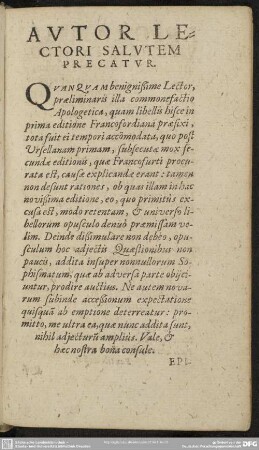 AVTOR LE-
CTORI SALVTEM
PRECATVR.
QVANQVAM benignißime Lector,
præliminaris illa commonefactio
Apologetica, quam libellis hisce in
prima editione Francofordiana præfixi,
tota fuit ei tempori accõmodata, quo post
Vrsellanam primam, subsecutæ mox se-
cundæ editionis, quæ Francofurti procu-
rata est, causæ explicandæ erant: tamen
non desunt rationes, ob quas illam in hac
novißima editione, eo, quo primitùs ex-
cusa est, modo retentam, & universo li-
bellorum opusculo denuò præmissam ve-
lim. Deinde dißimulare non debeo, opu-
sculum hoc adjectis Quæstionibus non
paucis, addita insuper nonnullorum So-
phismatum, quæ ab adversa parte objici-
untur, prodire auctius. Ne autem nova-
rum subinde acceßionum expectatione
quisquã ab emptione deterreatur: pro-
mitto, me ultra ea, quæ nunc addita sunt,
nihil adjecturũ ampliùs. Vale, &
hæc nostra boña consule.
EPI-